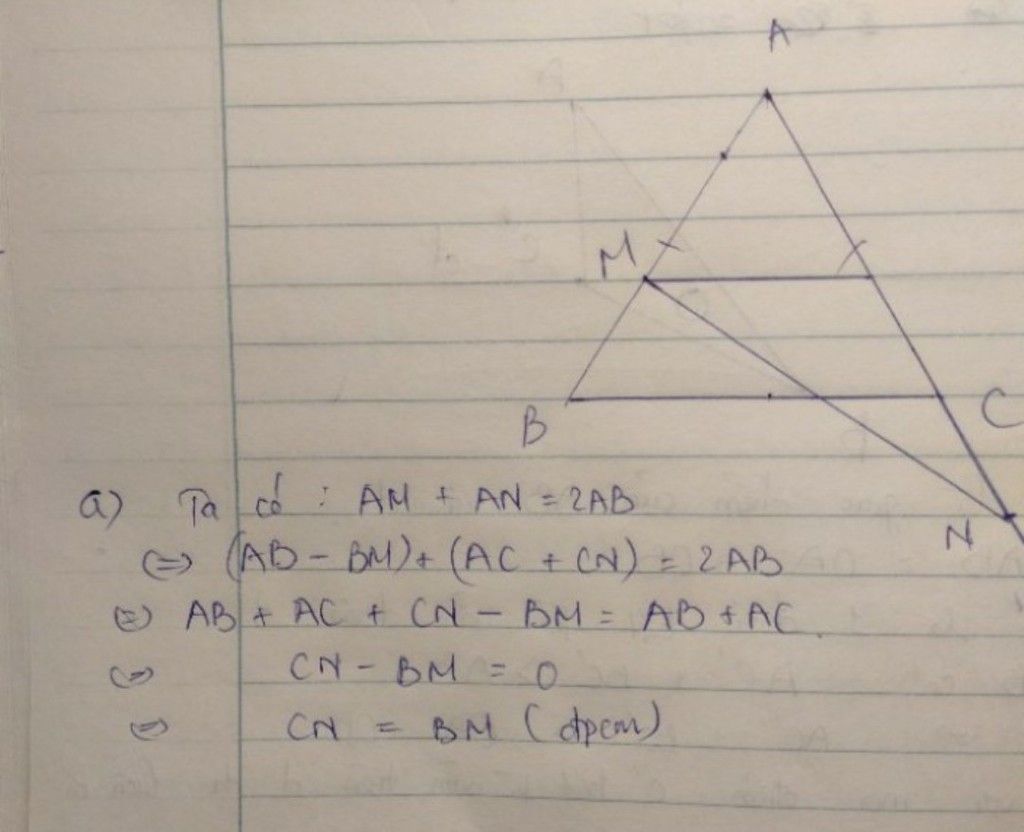 A
M
B
C
N
a) Ta có : AM + AN = 2AB
<=> (AB - BM) + (AC + CN) = 2AB
<=> AB + AC + CN - BM = AB + AC.
<=> CN - BM = 0
<=> CN = BM (đpcm)